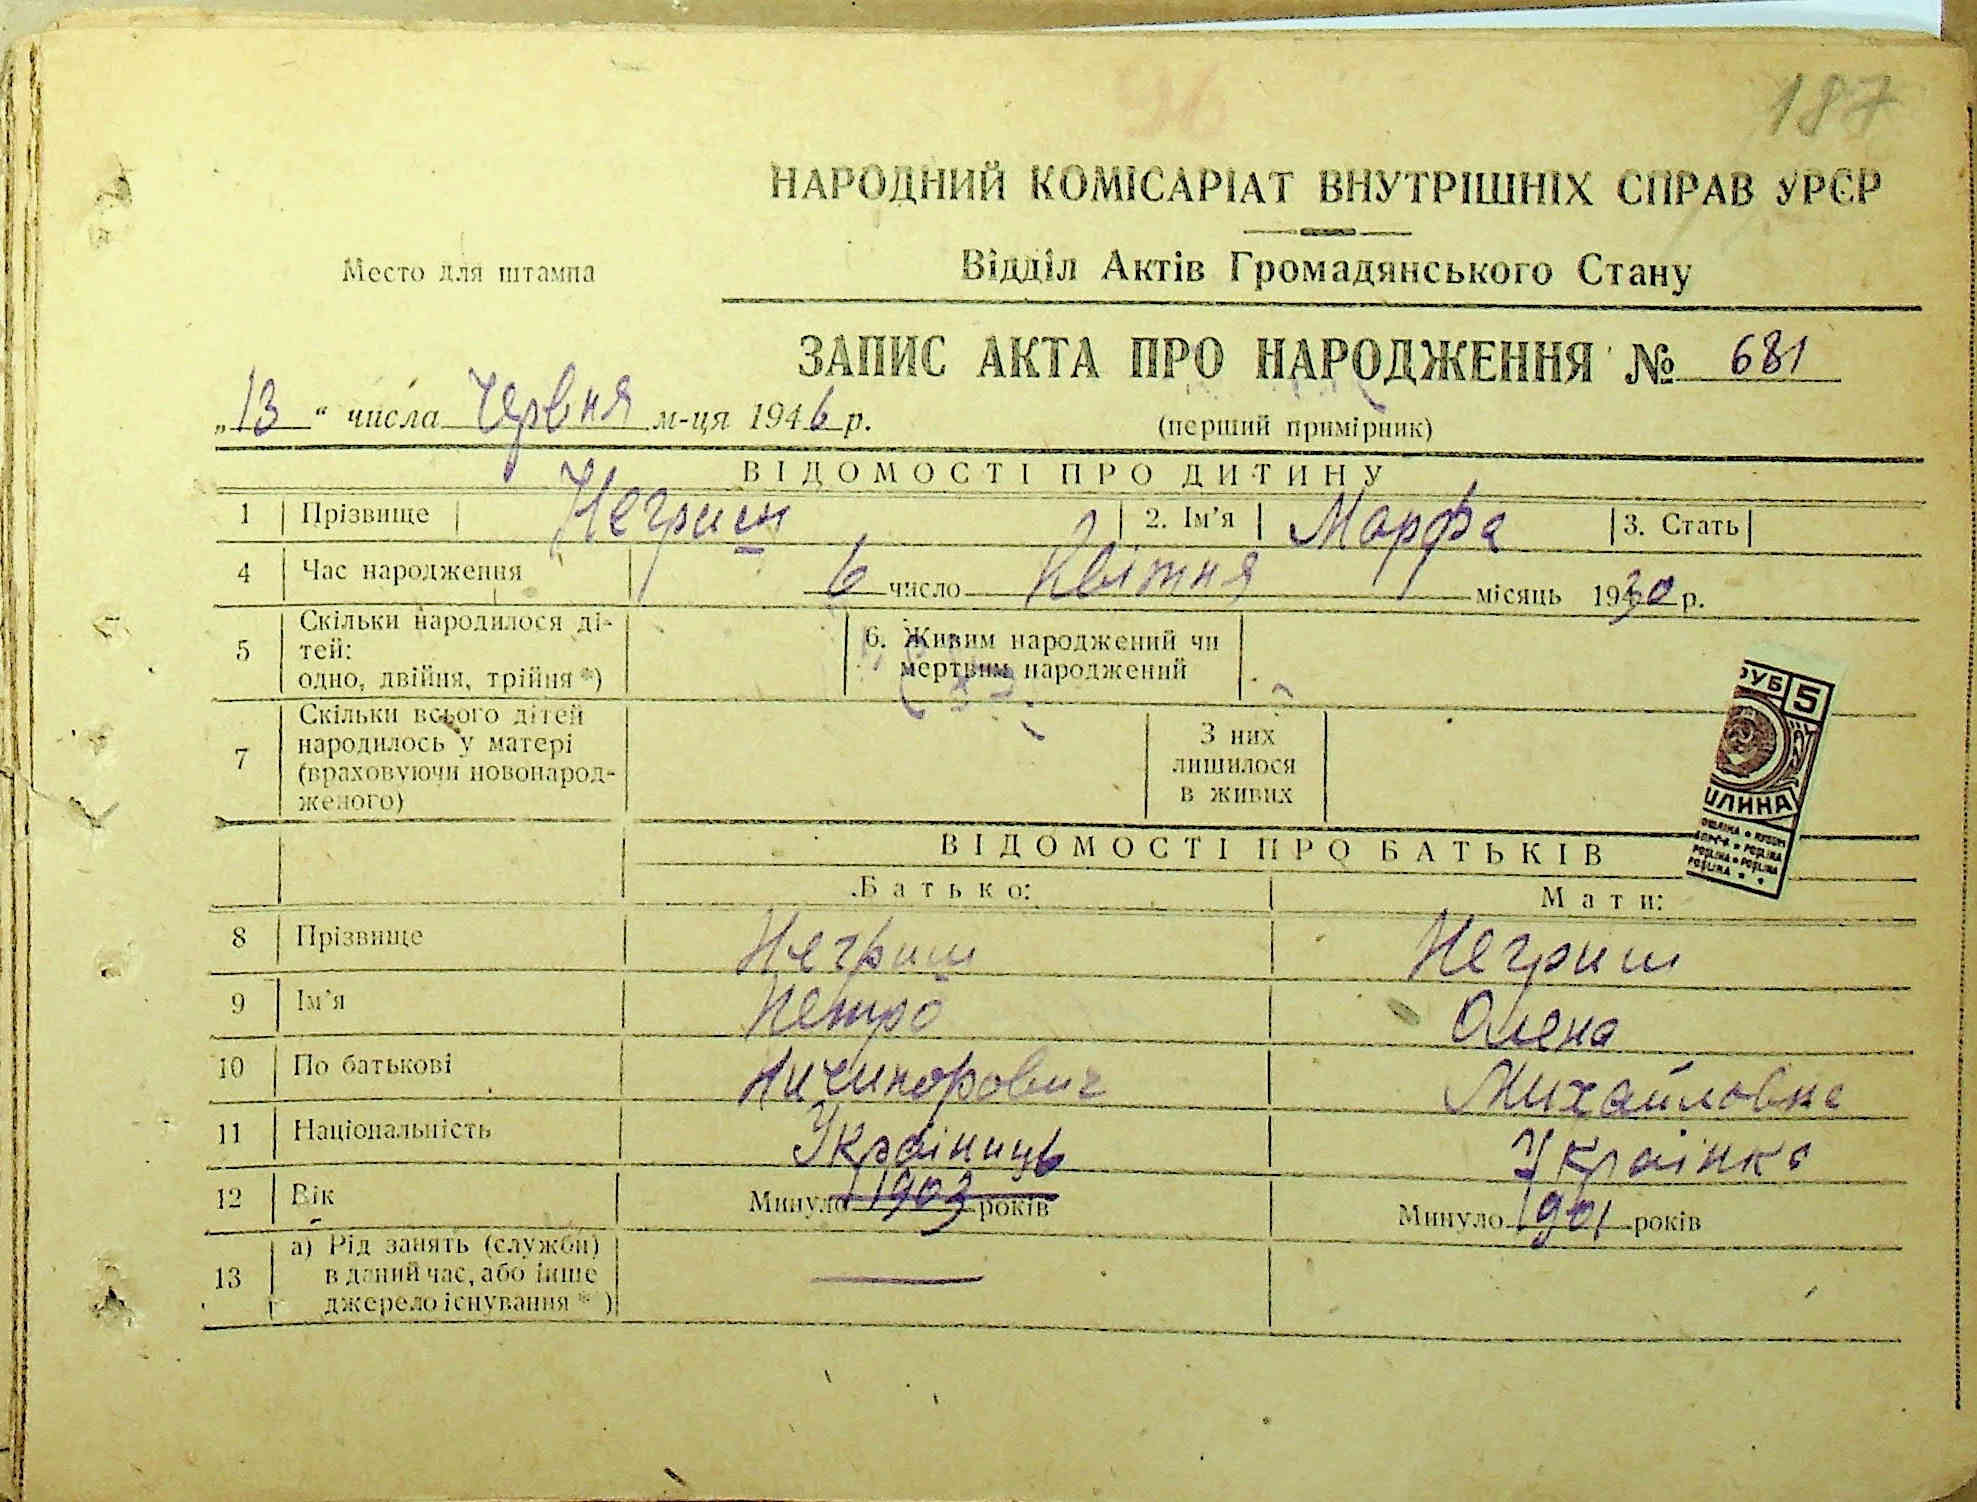 96
187
НАРОДНИЙ КОМІСАРІАТ ВНУТРІШНІХ СПРАВ УРСР
Место для штампа
Відділ Актів Громадянського Стану
ЗАПИС АКТА ПРО НАРОДЖЕННЯ № 681
„13“ числа Червня м-ця 1946 р.
(перший примірник)
ВІДОМОСТІ ПРО ДИТИНУ
1 Прізвище Негриш 2. Ім'я Марфа 3. Стать
4 Час народження 6 число Квітня місяць 1930 р.
5 Скільки народилося ді-
тей:
одно, двійня, трійня *)
6. Живим народжений чи
мертвим народжений
7 Скільки всього дітей
народилось у матері
(враховуючи новонарод-
женого)
З них
лишилося
в живих
РУБ 5
ВІДОМОСТІ ПРО БАТЬКІВ
Батько: Мати:
8 Прізвище Негриш Негриш
9 Ім'я Петро Олена
10 По батькові Михайловна
11 Національність Українець Українка
12 Вік Минуло 1903 років Минуло 1901 років
13 а) Рід занять (служби)
в даний час, або інше
джерело існування *)